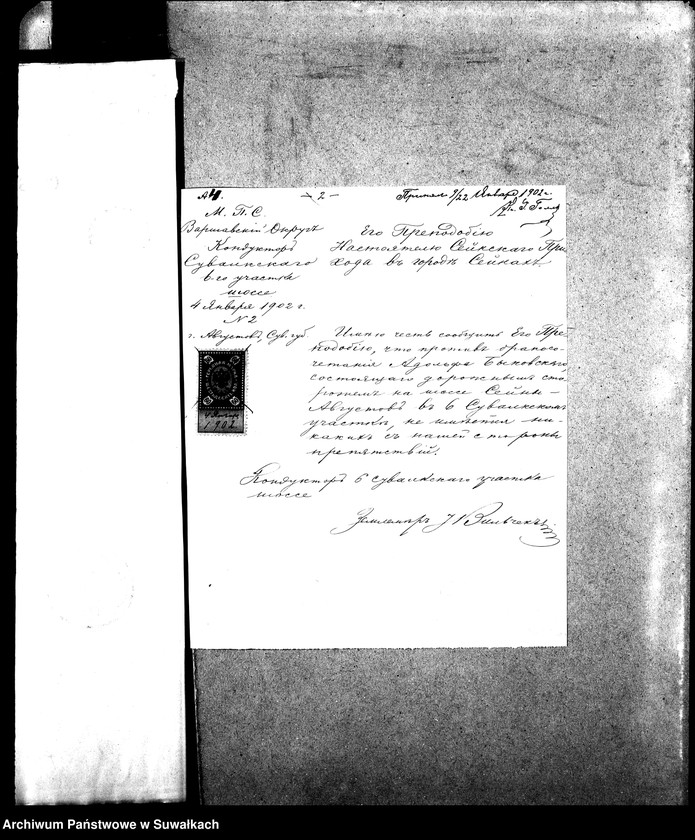 — 2 —
Принял 9/22 Января 1902 г.
М. П. С.
Варшавскій Округъ
Кондукторъ
Сувалкскаго
6-го участка
шоссе
4 Января 1902 г.
№ 2
г. Августовъ, Сув. губ
Его Преподобію
Настоятелю Сейнскаго При
хода въ городѣ Сейнахъ.
Имѣю честь сообщить Его Пре
подобію, что противъ бракосо
четанія Адольфа Быковскаго
состоящаго дорожнымъ сто
рожемъ на шоссе Сейны —
Августовъ въ 6 Сувалкскомъ
участкѣ, не имѣется ни-
какихъ съ нашей стороны
препятствій.
4 Января
1902
Кондукторъ 6 Сувалкскаго участка
шоссе
Землемѣръ
Archiwum Państwowe w Suwałkach